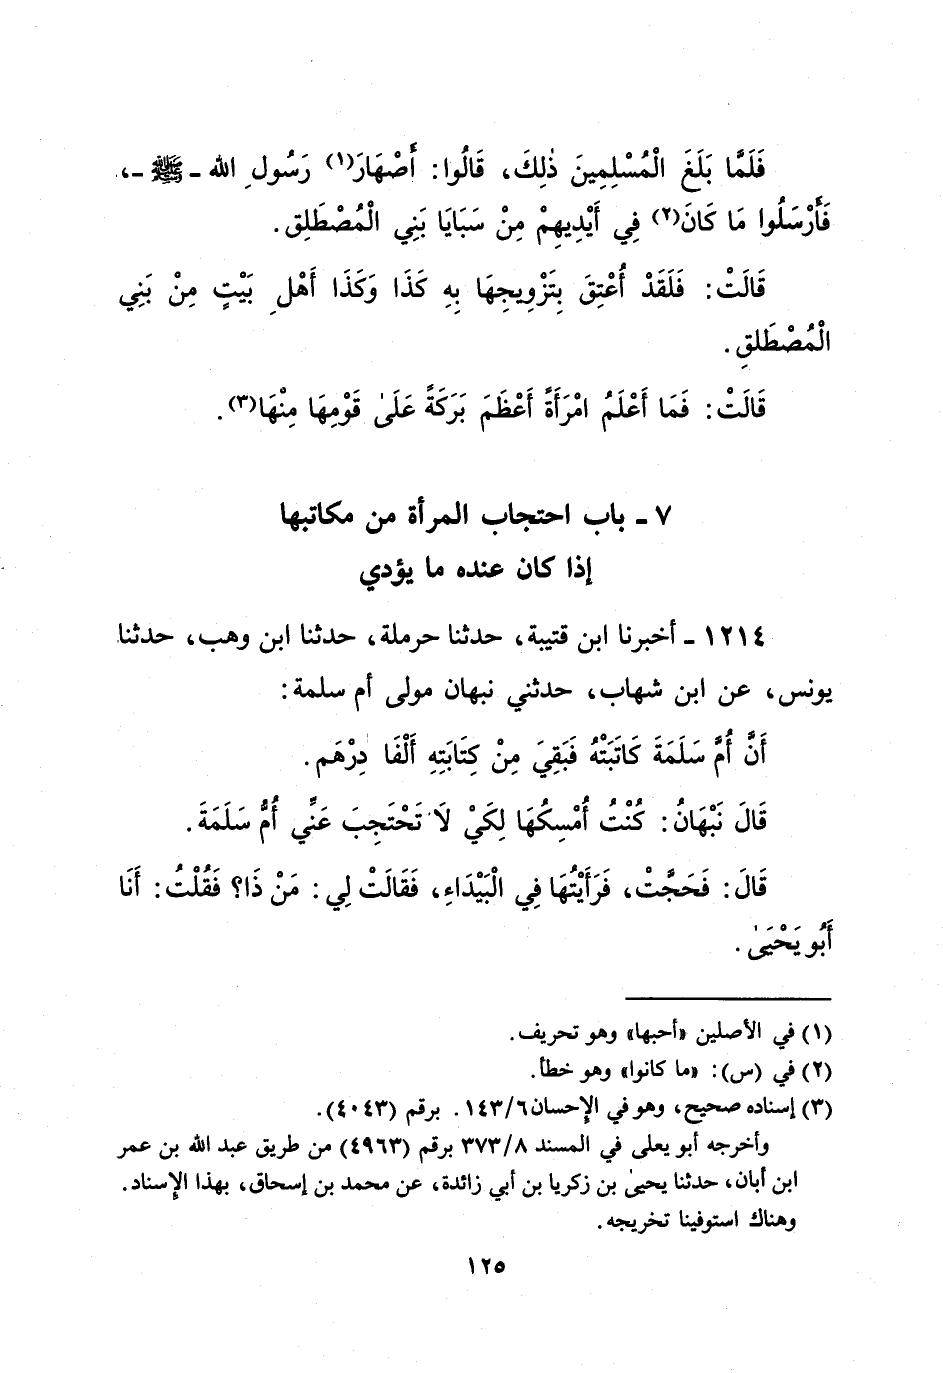 فَلَمَّا بَلَغَ الْمُسْلِمِينَ ذٰلِكَ، قَالُوا: أَصْهَارَ(١) رَسُولِ الله ـ ﷺ ـ،
فَأَرْسَلُوا مَا كَانَ(٢) فِي أَيْدِيهِمْ مِنْ سَبَايَا بَنِي الْمُصْطَلِقِ.
قَالَتْ: فَلَقَدْ أُعْتِقَ بِتَزْوِيجِهَا بِهِ كَذَا وَكَذَا أَهْلِ بَيْتٍ مِنْ بَنِي
الْمُصْطَلقِ.
قَالَتْ: فَمَا أَعْلَمُ امْرَأَةً أَعْظَمَ بَرَكَةً عَلَىٰ قَوْمِهَا مِنْهَا(٣).
٧ ـ باب احتجاب المرأة من مكاتبها
إذا كان عنده ما يؤدي
١٢١٤ ـ أخبرنا ابن قتيبة، حدثنا حرملة، حدثنا ابن وهب، حدثنا
يونس، عن ابن شهاب، حدثني نبهان مولى أم سلمة:
أَنَّ أُمَّ سَلَمَةَ كَاتَبَتْهُ فَبَقِيَ مِنْ كِتَابَتِهِ أَلْفَا دِرْهَمٍ.
قَالَ نَبْهَانُ: كُنْتُ أُمْسِكُهَا لِكَيْ لَا تَحْتَجِبَ عَنِّي أُمُّ سَلَمَةَ.
قَالَ: فَحَجَّتْ، فَرَأَيْتُهَا فِي الْبَيْدَاءِ، فَقَالَتْ لِي: مَنْ ذَا؟ فَقُلْتُ: أَنَا
أَبُو يَحْيَىٰ.
(١) في الأصلين «أحبها» وهو تحريف.
(٢) في (س): «ما كانوا» وهو خطأ.
(٣) إسناده صحيح، وهو في الإحسان ١٤٣/٦. برقم (٤٠٤٣).
وأخرجه أبو يعلى في المسند ٣٧٣/٨ برقم (٤٩٦٣) من طريق عبد الله بن عمر
ابن أبان، حدثنا يحيىٰ بن زكريا بن أبي زائدة، عن محمد بن إسحاق، بهذا الإسناد.
وهناك استوفينا تخريجه.
١٢٥